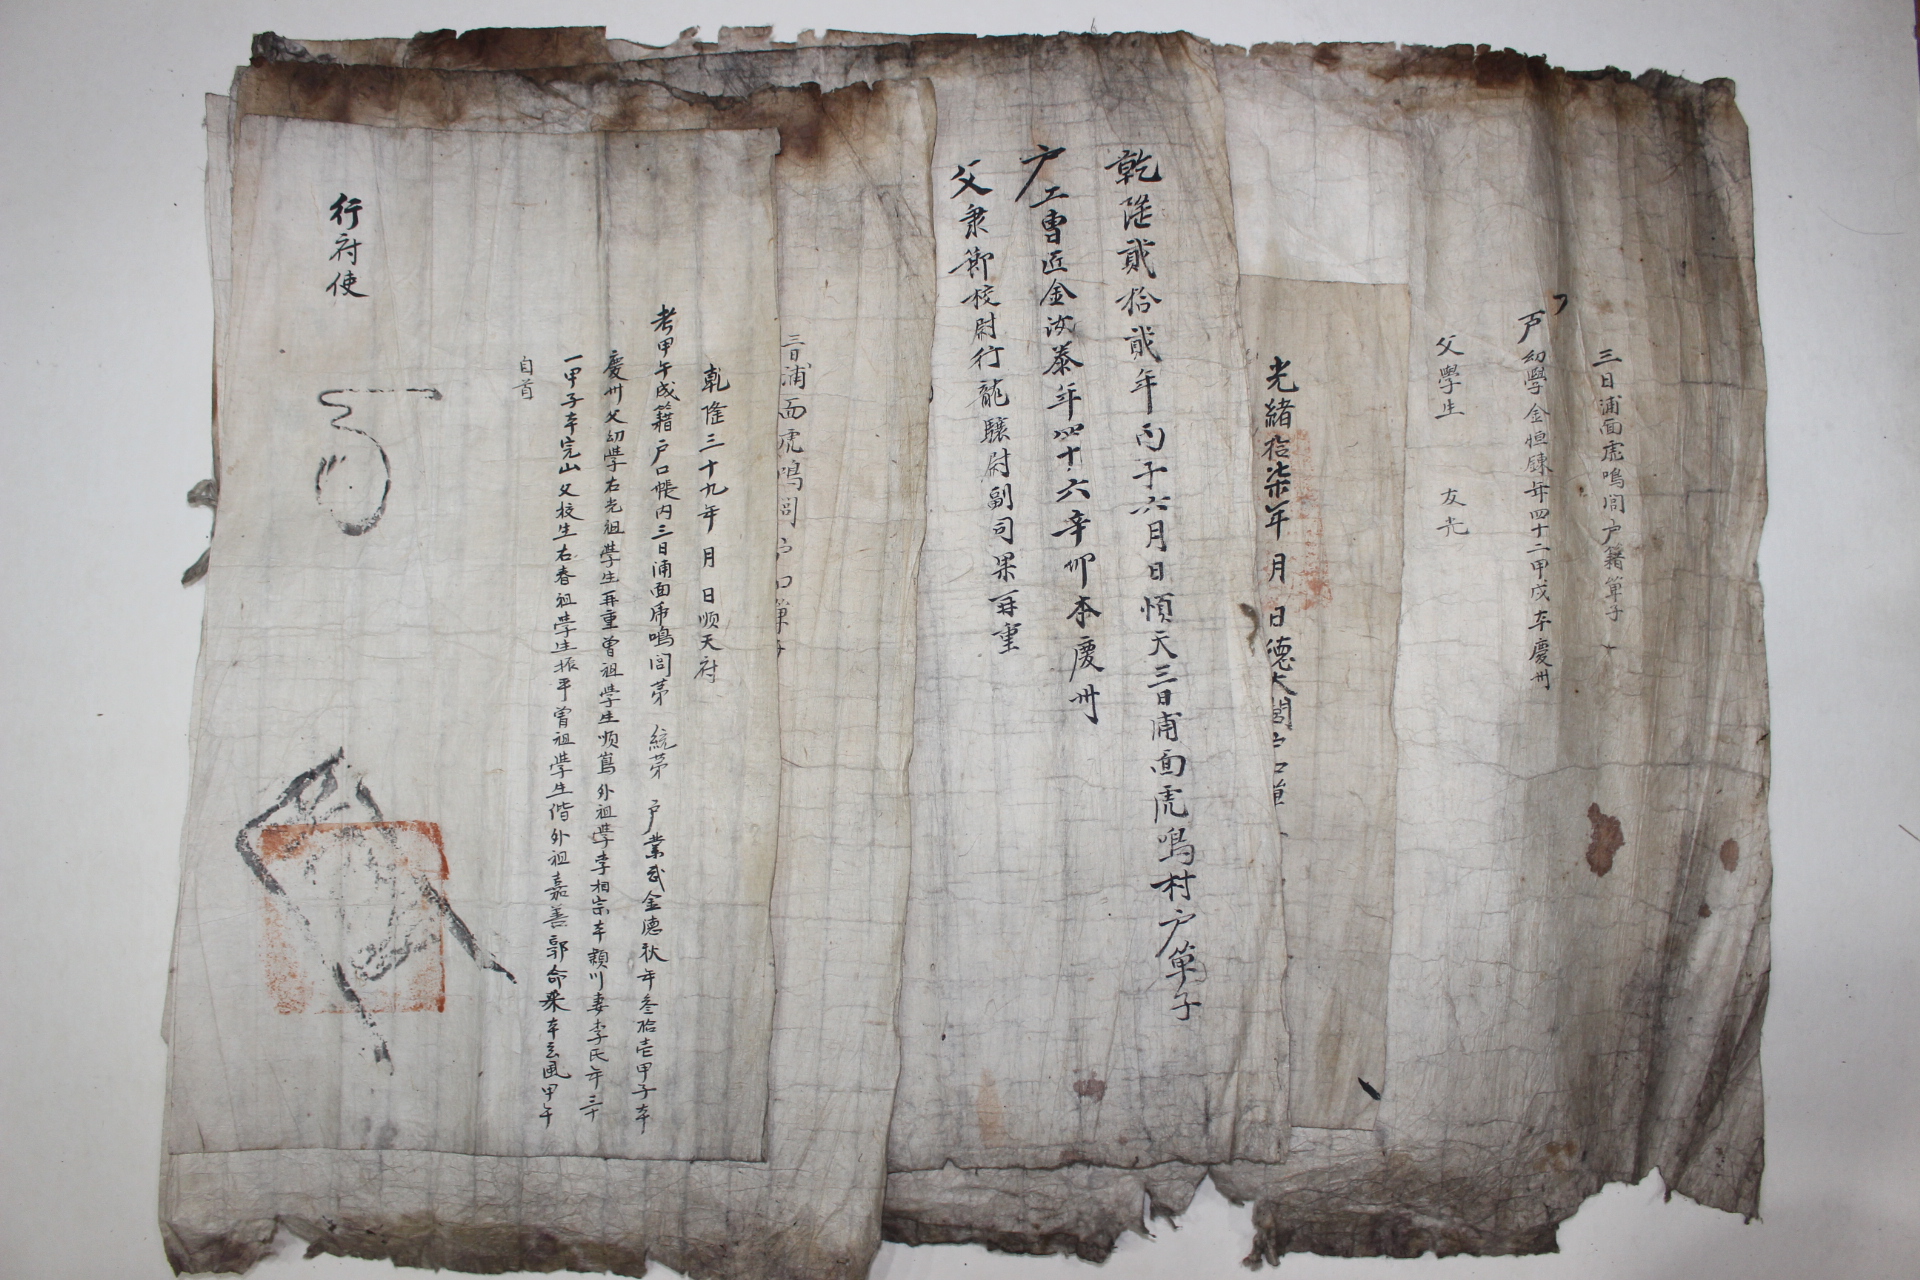 三日浦面虎鳴閭戶籍單子
戶幼學金恒鍊年四十二甲戌本慶州
父學生 友光
光緖拾柒年 月 日德大閭戶口單
乾隆貳拾貳年丙子六月日順天三日浦面虎鳴村戶單子
戶工曺匠金汝泰年四十六辛卯本慶州
父秉節校尉行龍驤尉副司果再重
三日浦面虎鳴閭戶口單子
乾隆三十九年 月 日順天府
考甲午成籍戶口帳內三日浦面虎鳴閭第 統第 戶業武金德秋年叁拾壱甲子本
慶州父幼學右光祖學生再重曾祖學生順嵩外祖學李相宗本潁川妻李氏年三十
一甲子本完山父校生右春祖學生振平曾祖學生偕外祖嘉善郭命采本玄風甲午
自首
行府使